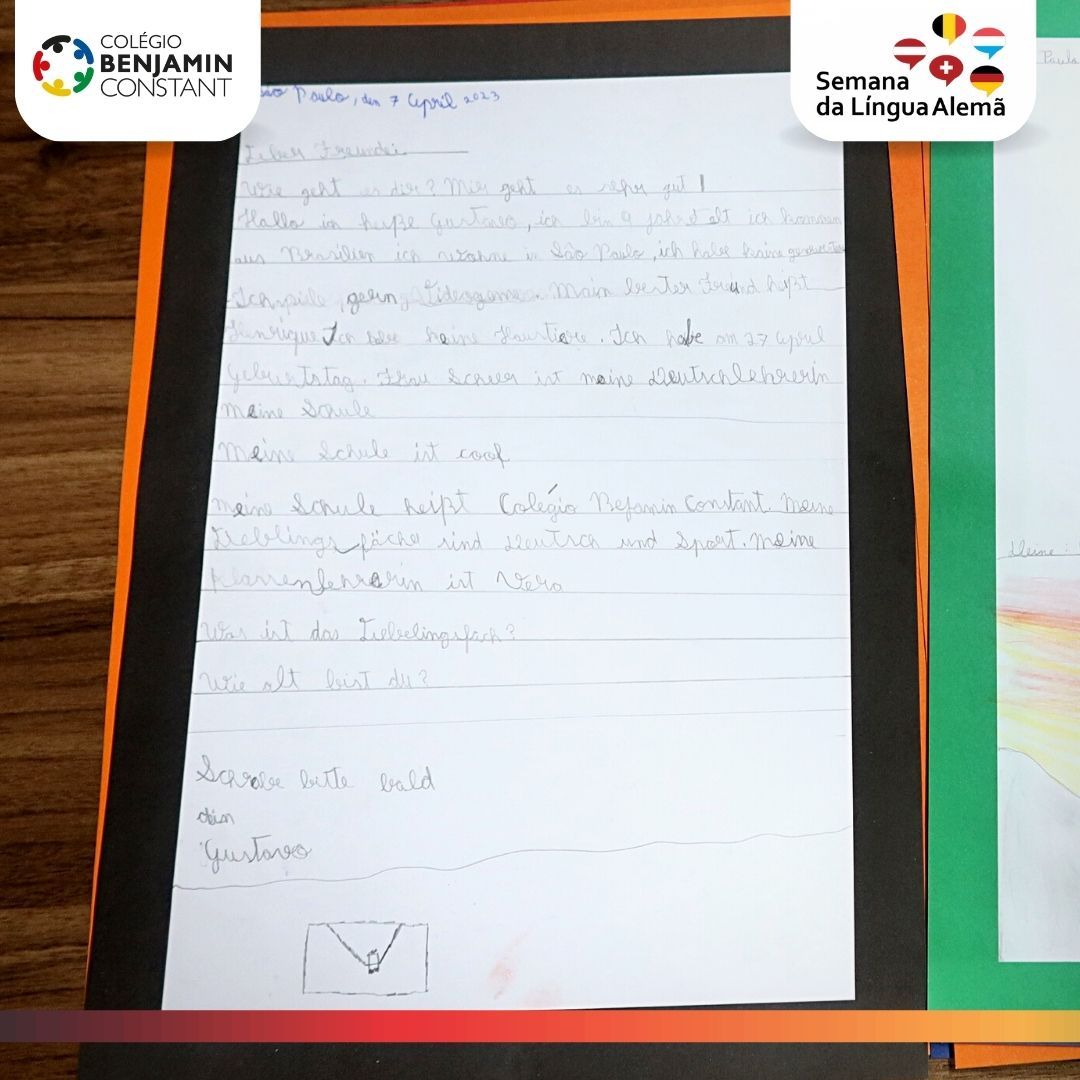 COLÉGIO
BENJAMIN
CONSTANT
Semana
da Língua Alemã
São Paulo, den 7 April 2023
Paula
Lieber Freunde
Wie geht es dir? Mir geht es sehr gut!
Hallo ich heiße Gustavo, ich bin 9 jahre alt ich kommen
aus Brasilien ich wohne in São Paulo, ich habe keine
gern Videogame. Main bester Freund hißt
Henrique Ich keine Haustiere. Ich habe am 27 April
Geburtstag. Frau ist meine Deutschlehrerin
Meine Schule
Meine Schule ist cool
Meine Schule heißt Colégio Bejamin Constant. Meine
Lieblingsfächer sind Deutsch und Sport. Meine
Klassenlehrerin ist Vera
Was ist das Liebelingsfach?
Wie alt bist du?
Schrabe bitte bald
dein
Gustavo